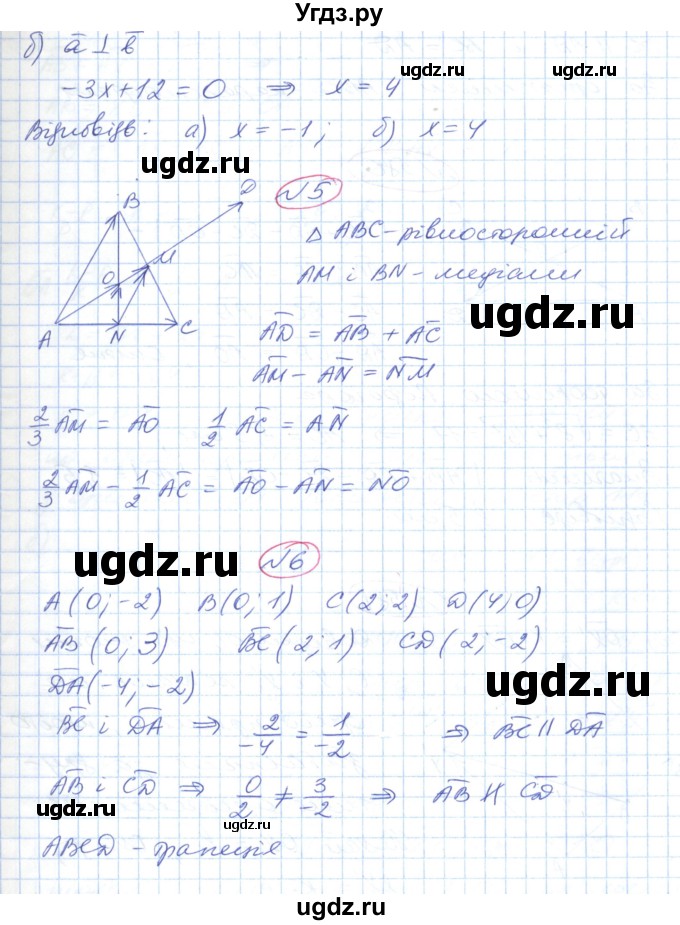 Угдз.ру
б) a̅ ⊥ b̅
-3x+12=0 ⇒ x=4
ugdz.ru
ugdz.ru
Відповідь: а) x=-1; б) x=4
ugdz.ru
ugdz.ru
№5
B
D
O
M
A
N
C
Δ ABC-рівносторонній
AM і BN-медіани
ugdz.ru
A̅D̅ = A̅B̅ + A̅C̅
A̅M̅ - A̅N̅ = N̅M̅
2/3 A̅M̅ = A̅O̅   1/2 A̅C̅ = A̅N̅
2/3 A̅M̅ - 1/2 A̅C̅ = A̅O̅ - A̅N̅ = N̅O̅
ugdz.ru
№6
A(0;-2) B(0;1) C(2;2) D(4;0)
A̅B̅(0;3) B̅C̅(2;1) C̅D̅(2;-2)
ugdz.ru
D̅A̅(-4;-2)
B̅C̅ і D̅A̅ ⇒ 2/-4 = 1/-2 ⇒ B̅C̅ || D̅A̅
A̅B̅ і C̅D̅ ⇒ 0/2 ≠ 3/-2 ⇒ A̅B̅ ∦ C̅D̅
ugdz.ru
ugdz.ru
ABCD - трапеція
ugdz.ru
ugdz.ru